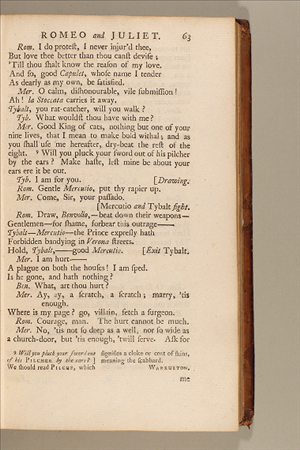 ROMEO and JULIET. 63
Rom. I do protest, I never injur'd thee,
But love thee better than thou canst devise;
'Till thou shalt know the reason of my love.
And so, good Capulet, whose name I tender
As dearly as my own, be satisfied.
Mer. O calm, dishonourable, vile submission!
Ah! la Stoccata carries it away.
Tybalt, you rat-catcher, will you walk?
Tyb. What wouldst thou have with me?
Mer. Good King of cats, nothing but one of your
nine lives, that I mean to make bold withal; and as
you shall use me hereafter, dry-beat the rest of the
eight. 9 Will you pluck your sword out of his pilcher
by the ears? Make haste, lest mine be about your
ears ere it be out.
Tyb. I am for you. [Drawing.
Rom. Gentle Mercutio, put thy rapier up.
Mer. Come, Sir, your passado.
[Mercutio and Tybalt fight.
Rom. Draw, Benvolio,—beat down their weapons—
Gentlemen—for shame, forbear this outrage—
Tybalt—Mercutio—the Prince expresly hath
Forbidden bandying in Verona streets.
Hold, Tybalt,—good Mercutio. [Exit Tybalt.
Mer. I am hurt—
A plague on both the houses! I am sped.
Is he gone, and hath nothing?
Ben. What, art thou hurt?
Mer. Ay, ay, a scratch, a scratch; marry, 'tis
enough.
Where is my page? go, villain, fetch a surgeon.
Rom. Courage, man. The hurt cannot be much.
Mer. No, 'tis not so deep as a well, nor so wide as
a church-door, but 'tis enough, 'twill serve. Ask for
9 Will you pluck your sword out
of his PILCHER by the ears?]
We should read PILCHE, which
signifies a cloke or coat of skins,
meaning the scabbard.
WARBURTON.
me